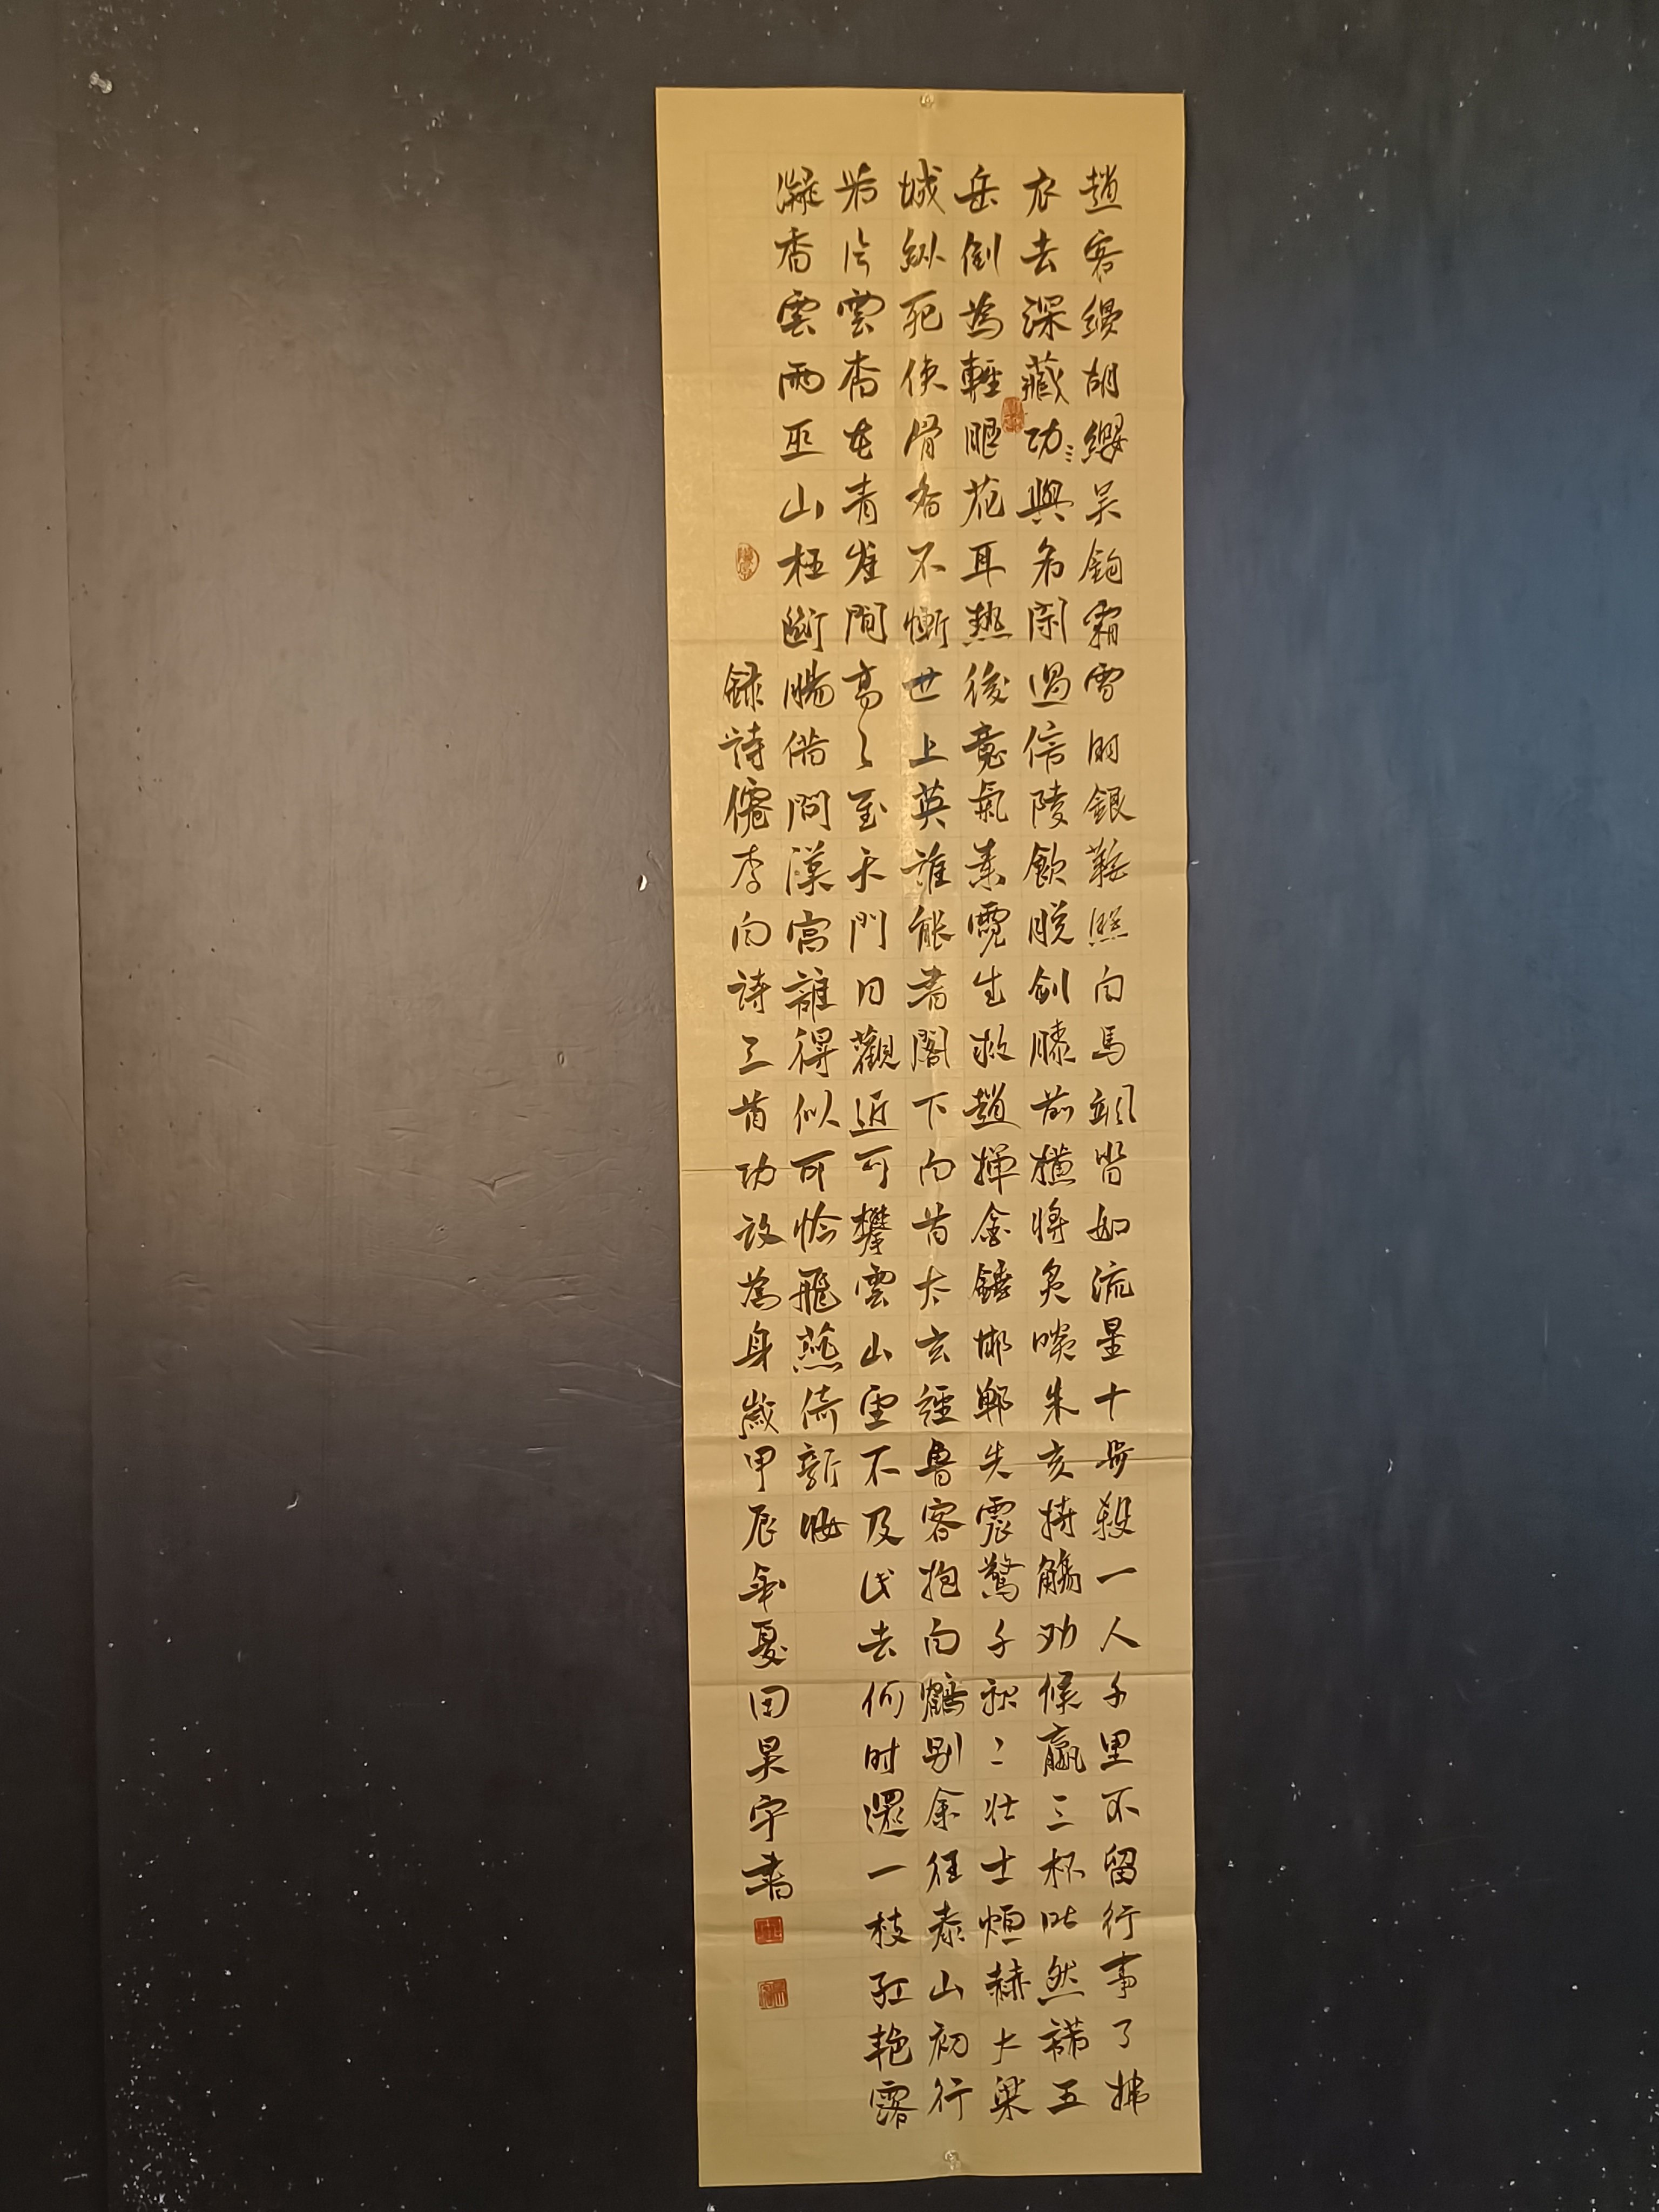 趙客縵胡纓吳鉤霜雪明銀鞍照白馬颯沓如流星十步殺一人千里不留行事了拂
衣去深藏功與名閑過信陵飲脫劍膝前橫將炙啖朱亥持觴劝侯嬴三杯吐然諾五
岳倒為輕眼花耳熱後意氣素霓生救趙揮金錘邯鄲先震驚千秋二壯士烜赫大梁
城縱死俠骨香不慚世上英誰能書閣下白首太玄經魯客抱白鶴別余往泰山初行
若片雲杳在青崖間高々至天門日觀近可攀雲山望不及此去何时還一枝紅艳露
凝香雲雨巫山枉斷腸借問漢宮誰得似可憐飛燕倚新妝
錄詩僊李白詩三首功改為身歲甲辰年夏田昊宇書